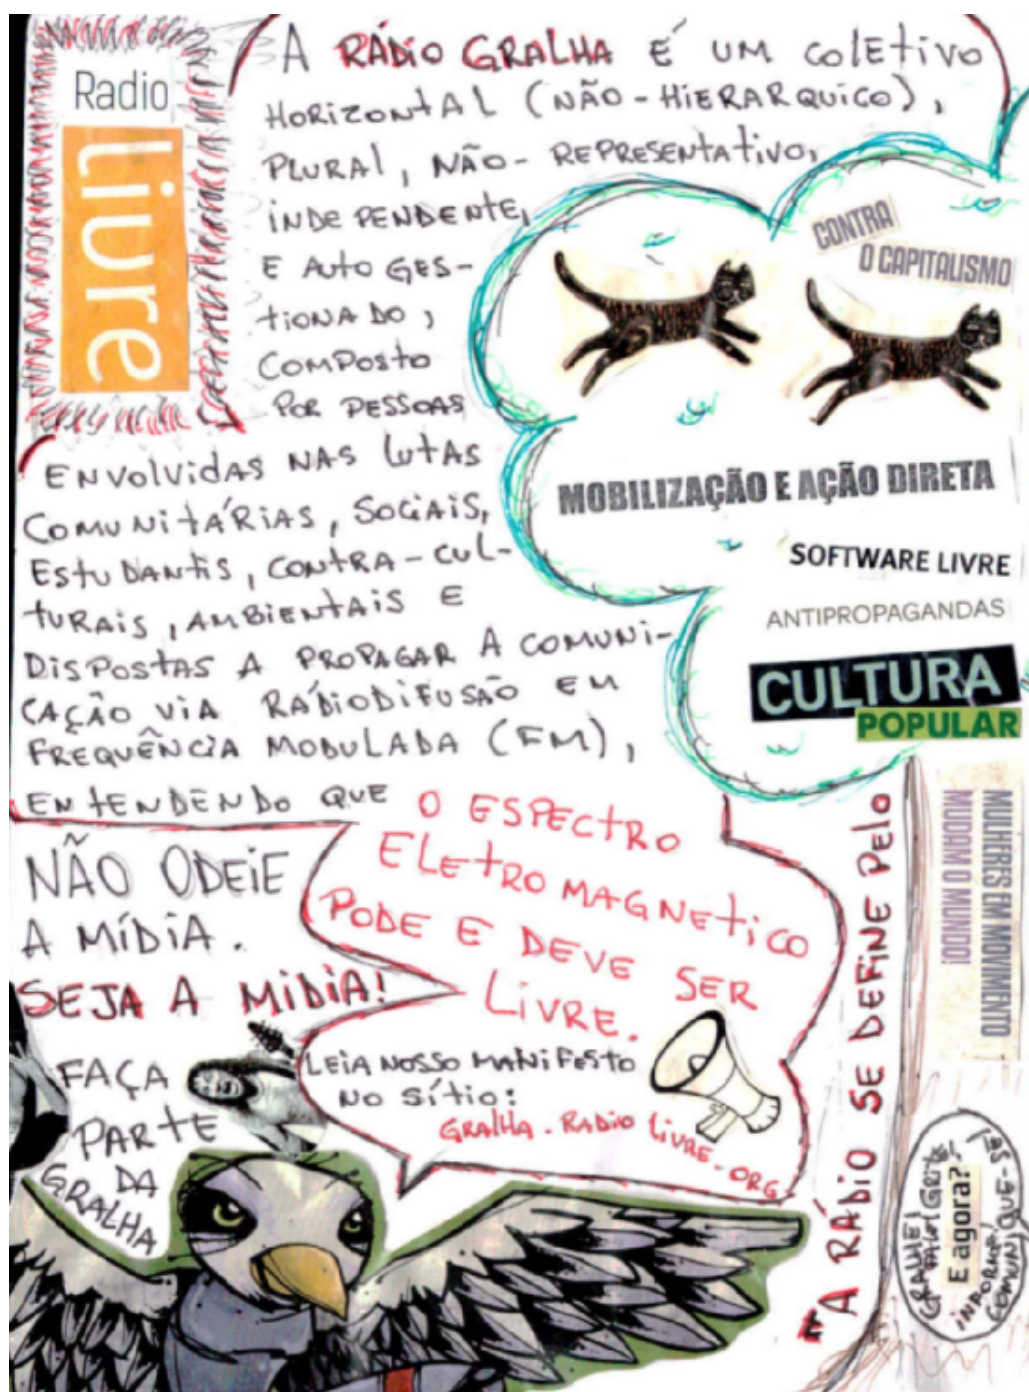 Radio
livre
A RÁDIO GRALHA É UM COLETIVO
HORIZONTAL (NÃO-HIERARQUICO),
PLURAL, NÃO-REPRESENTATIVO,
INDEPENDENTE,
E AUTO GES-
TIONADO,
COMPOSTO
POR PESSOAS
ENVOLVIDAS NAS LUTAS
COMUNITÁRIAS, SOCIAIS,
ESTUDANTIS, CONTRA-CUL-
TURAIS, AMBIENTAIS E
DISPOSTAS A PROPAGAR A COMUNI-
CAÇÃO VIA RÁDIODIFUSÃO EM
FREQUÊNCIA MODULADA (FM),
ENTENDENDO QUE O ESPECTRO
ELETROMAGNETICO
PODE E DEVE SER
LIVRE.
LEIA NOSSO MANIFESTO
NO SÍTIO:
GRALHA.RADIOLIVRE.ORG
CONTRA
O CAPITALISMO
MOBILIZAÇÃO E AÇÃO DIRETA
SOFTWARE LIVRE
ANTIPROPAGANDAS
CULTURA
POPULAR
MULHERES EM MOVIMENTO
MUDAM O MUNDO!
NÃO ODEIE
A MÍDIA.
SEJA A MIDIA!
FAÇA
PARTE
DA
GRALHA
"A RÁDIO SE DEFINE PELO
GRALHE!
FALA! GRITE!
E agora?
COMUNIQUE-SE!